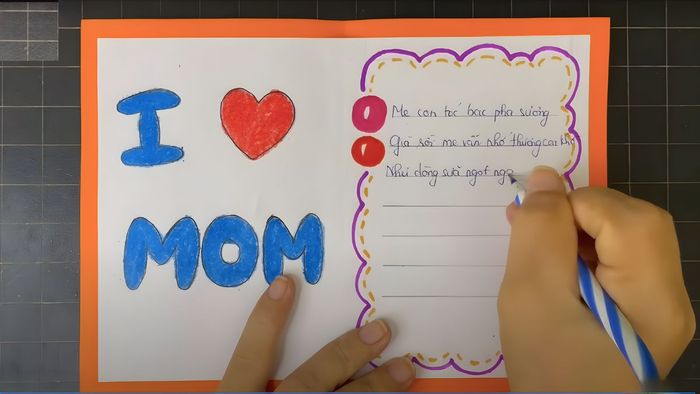 I ❤ MOM
Mẹ con tóc bạc pha sương
Già rồi mẹ vẫn nhớ thương con
Như dòng suối ngọt